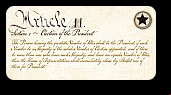 Article II.
Section 1 ~ Election of the President
The Person having the greatest Number of Votes shall be the President, if such
Number be a Majority of the whole Number of Electors appointed; and if there
be more than one who have such Majority, and have an equal Number of Votes,
then the House of Representatives shall immediately chuse by Ballot one of
them for President